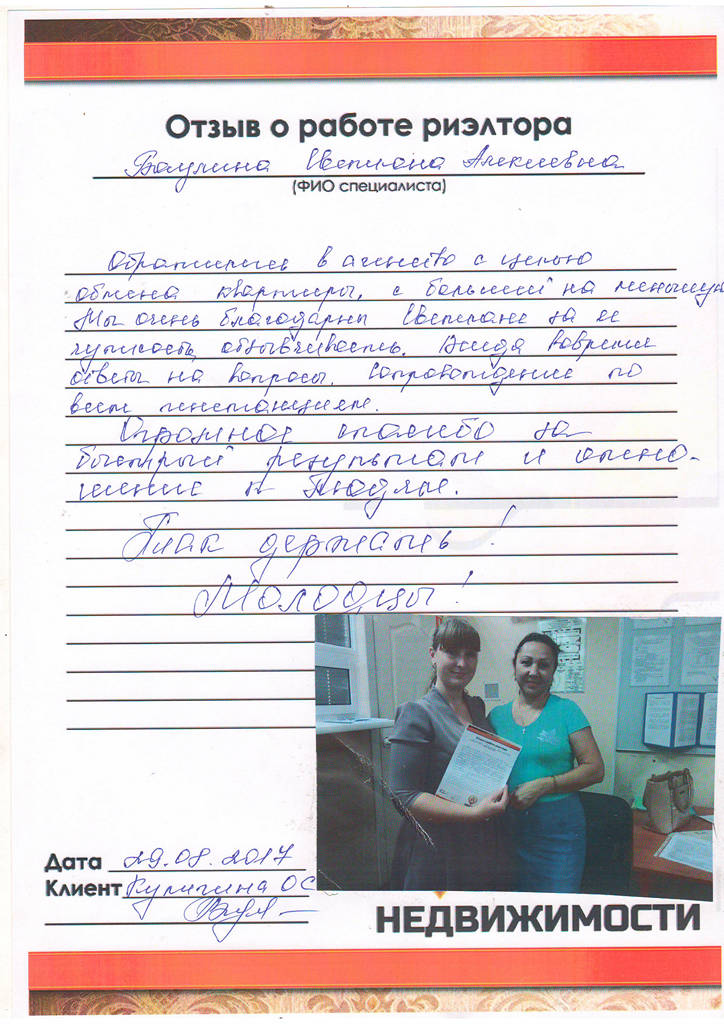 Отзыв о работе риэлтора
Светлана Алексеевна
(ФИО специалиста)
Обратились в агенство с целью
обмена квартиры, с большей на меньшую
Мы очень благодарны Светлане за ее
чуткость, отзывчивость. Всегда вовремя
ответы на вопросы. Сопровождение по
всем инстанциям.
Огромное спасибо за
быстрый результат и отно-
шение к людям.
Так держать!
Молодцы!
Дата 29.08.2017
Клиент Кулигина ОС
НЕДВИЖИМОСТИ